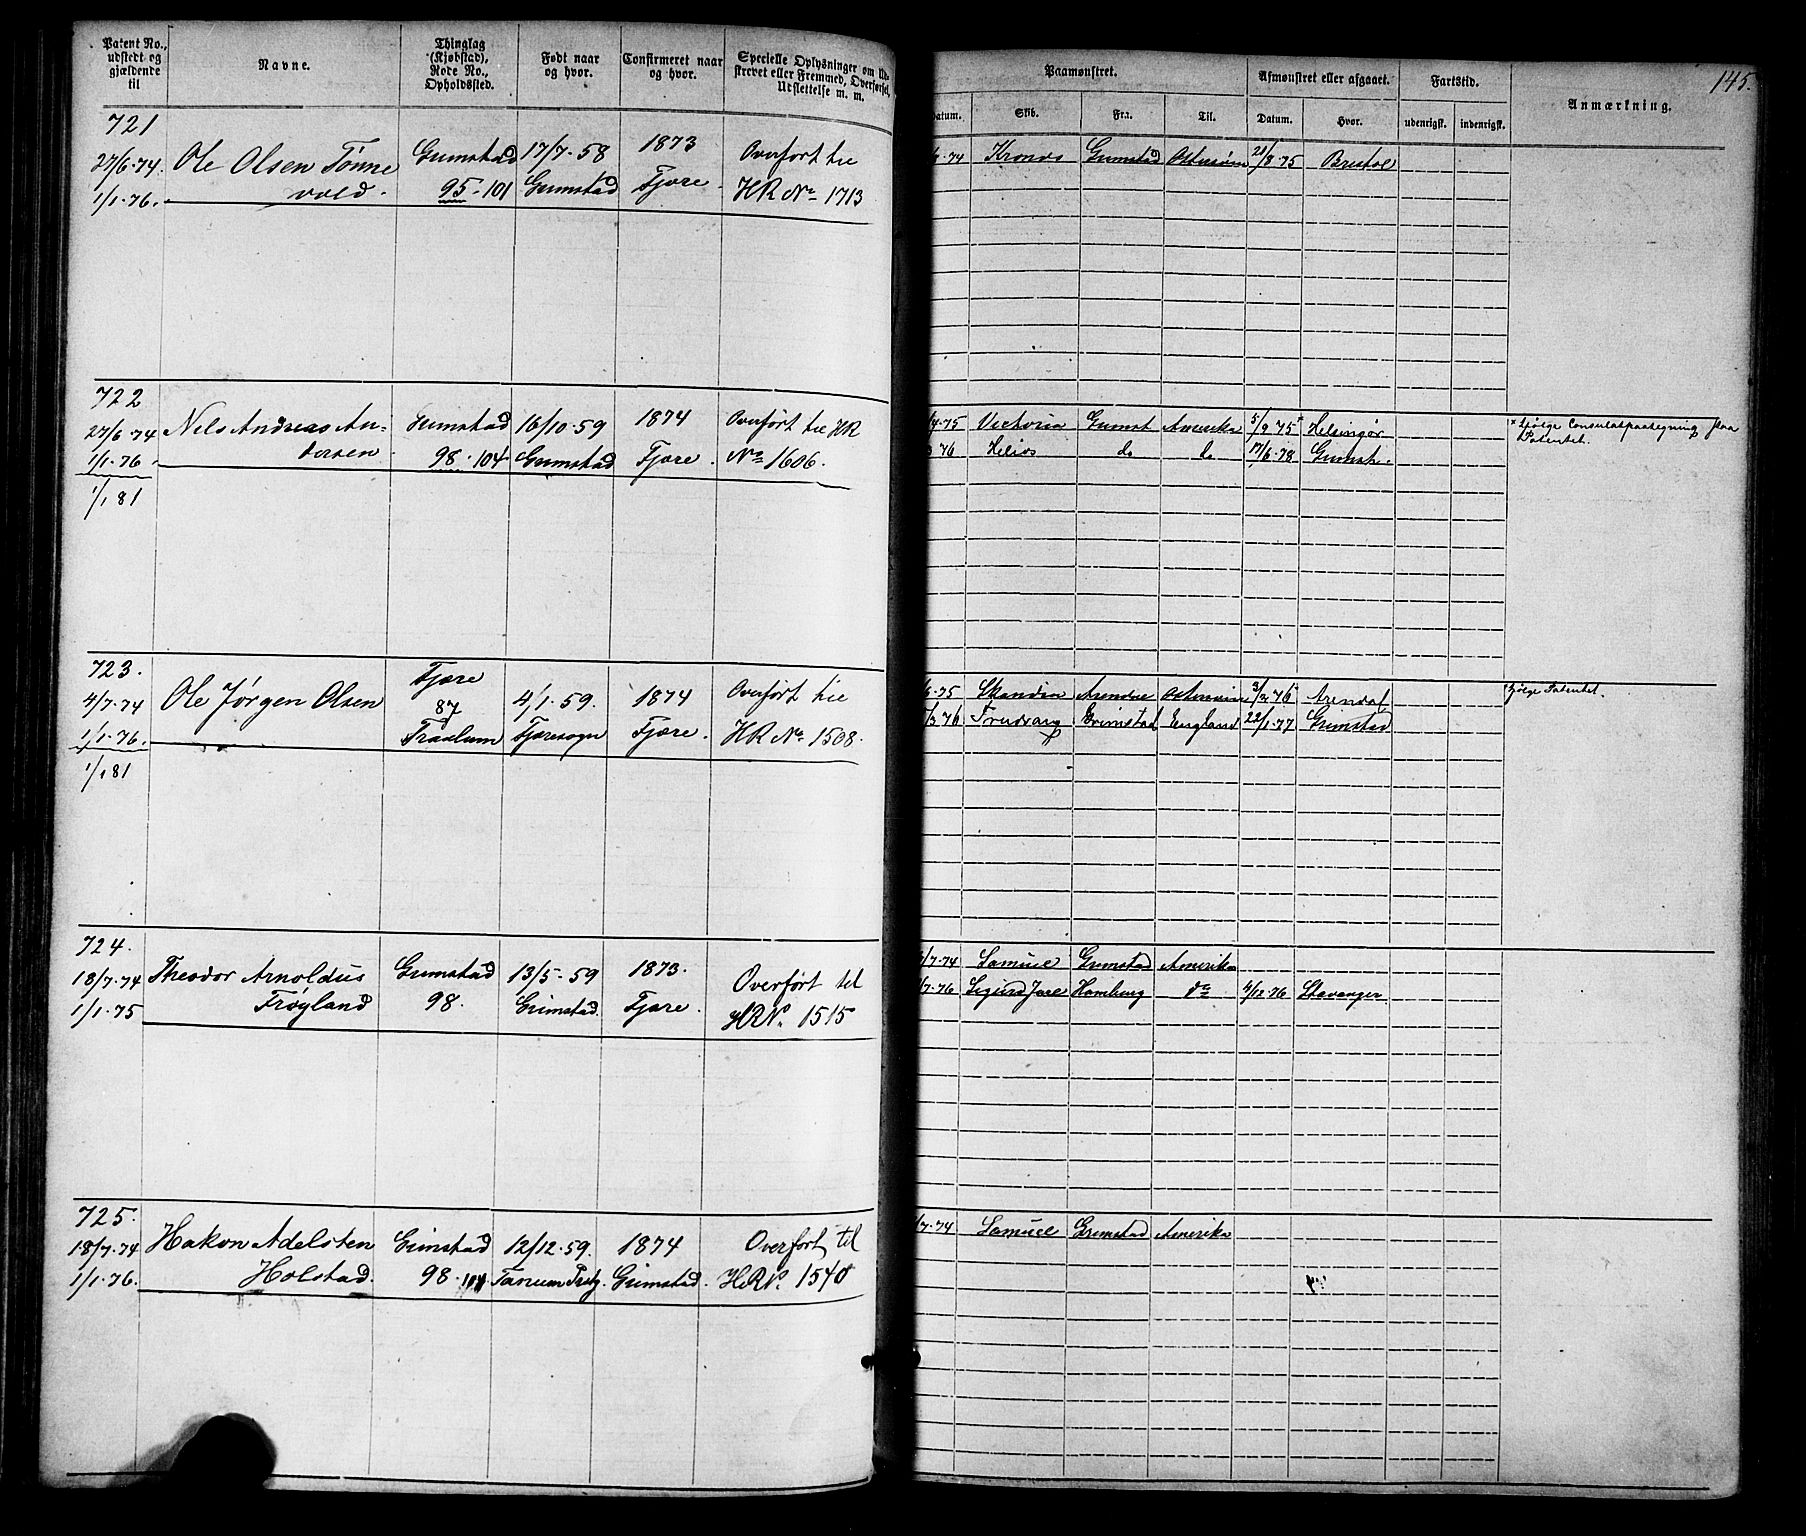 Patent No., udstedt og gjældende til
Navne.
Thinglag (Kjøbstad), Rode No., Opholdssted.
Født naar og hvor.
Confirmeret naar og hvor.
Specielle Oplysninger om
strevet eller Fremmed, Overførsel,
Udslettelse m. m.
Paamønstret.
Afmønstret eller afgaaet.
Fartstid.
Anmærkning.
145.
Datum. Skib. Fra. Til. Datum. Hvor. udenrigsk. indenrigsk.
721
27/6.74. Ole Olsen Tønne Grimstad 17/7.58 1873 Overført til
1/1.76. vold. 95.101 Grimstad Fjære. HR No 1713
74 Kronos Grimstad Østersøen 21/8.75 Bristol
722
27/6.74 Nils Andreas An- Grimstad 16/10.59 1874 Overført til HR
1/1.76 dersen 98.104 Grimstad Fjære. No 1606.
1/1 81
75 Victoria Grimst Amerika 5/9.75 Helsingør ifølge Consulatpaategning paa
Patentet.
76 Helios do do 17/6.78 Grimst.
723.
4/7.74 Ole Jørgen Olsen Fjære 4/1.59. 1874 Overført til
1/1.76. 87 Fjæresogn Fjære. HR No 1508.
1/1 81
75 Skandia Arendal Østersøen 3/2.76 Arendal ifølge Patentet.
76 Trudvang Grimstad England 22/1.77 Grimstad
724.
18/7.74 Theodor Arnoldus Grimstad 13/5.59 1873. Overført til
1/1.75 Frøyland 98. Grimstad. Fjære. HR No. 1515
/7.74 Samuel Grimstad Amerika
/7.76 Sigurd Jare Hamburg do 4/12.76 Stavanger
725.
18/7.74 Hakon Adelsten Grimstad 12/12.59. 1874 Overført til
1/1.76. Holstad. 98.104 Tanum Grimstad. HR No. 1540
/7.74 Samuel Grimstad Amerika